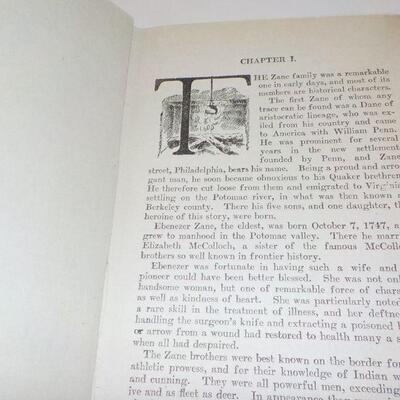 CHAPTER I.
THE Zane family was a remarkable
one in early days, and most of its
members are historical characters.
The first Zane of whom any
trace can be found was a Dane of
aristocratic lineage, who was ex-
iled from his country and came
to America with William Penn.
He was prominent for several
years in the new settlement
founded by Penn, and Zane
street, Philadelphia, bears his name. Being a proud and arro-
gant man, he soon became obnoxious to his Quaker brethren.
He therefore cut loose from them and emigrated to Virginia,
settling on the Potomac river, in what was then known
Berkeley county. There his five sons, and one daughter, the
heroine of this story, were born.
Ebenezer Zane, the eldest, was born October 7, 1747,
grew to manhood in the Potomac valley. There he marr
Elizabeth McColloch, a sister of the famous McColl
brothers so well known in frontier history.
Ebenezer was fortunate in having such a wife and
pioneer could have been better blessed. She was not only
handsome woman, but one of remarkable force of charac
as well as kindness of heart. She was particularly noted
a rare skill in the treatment of illness, and her deftness
handling the surgeon's knife and extracting a poisoned b
or arrow from a wound had restored to health many a s
when all had despaired.
The Zane brothers were best known on the border for
athletic prowess, and for their knowledge of Indian w
and cunning. They were all powerful men, exceeding
ive and as fleet as deer. In appearance they